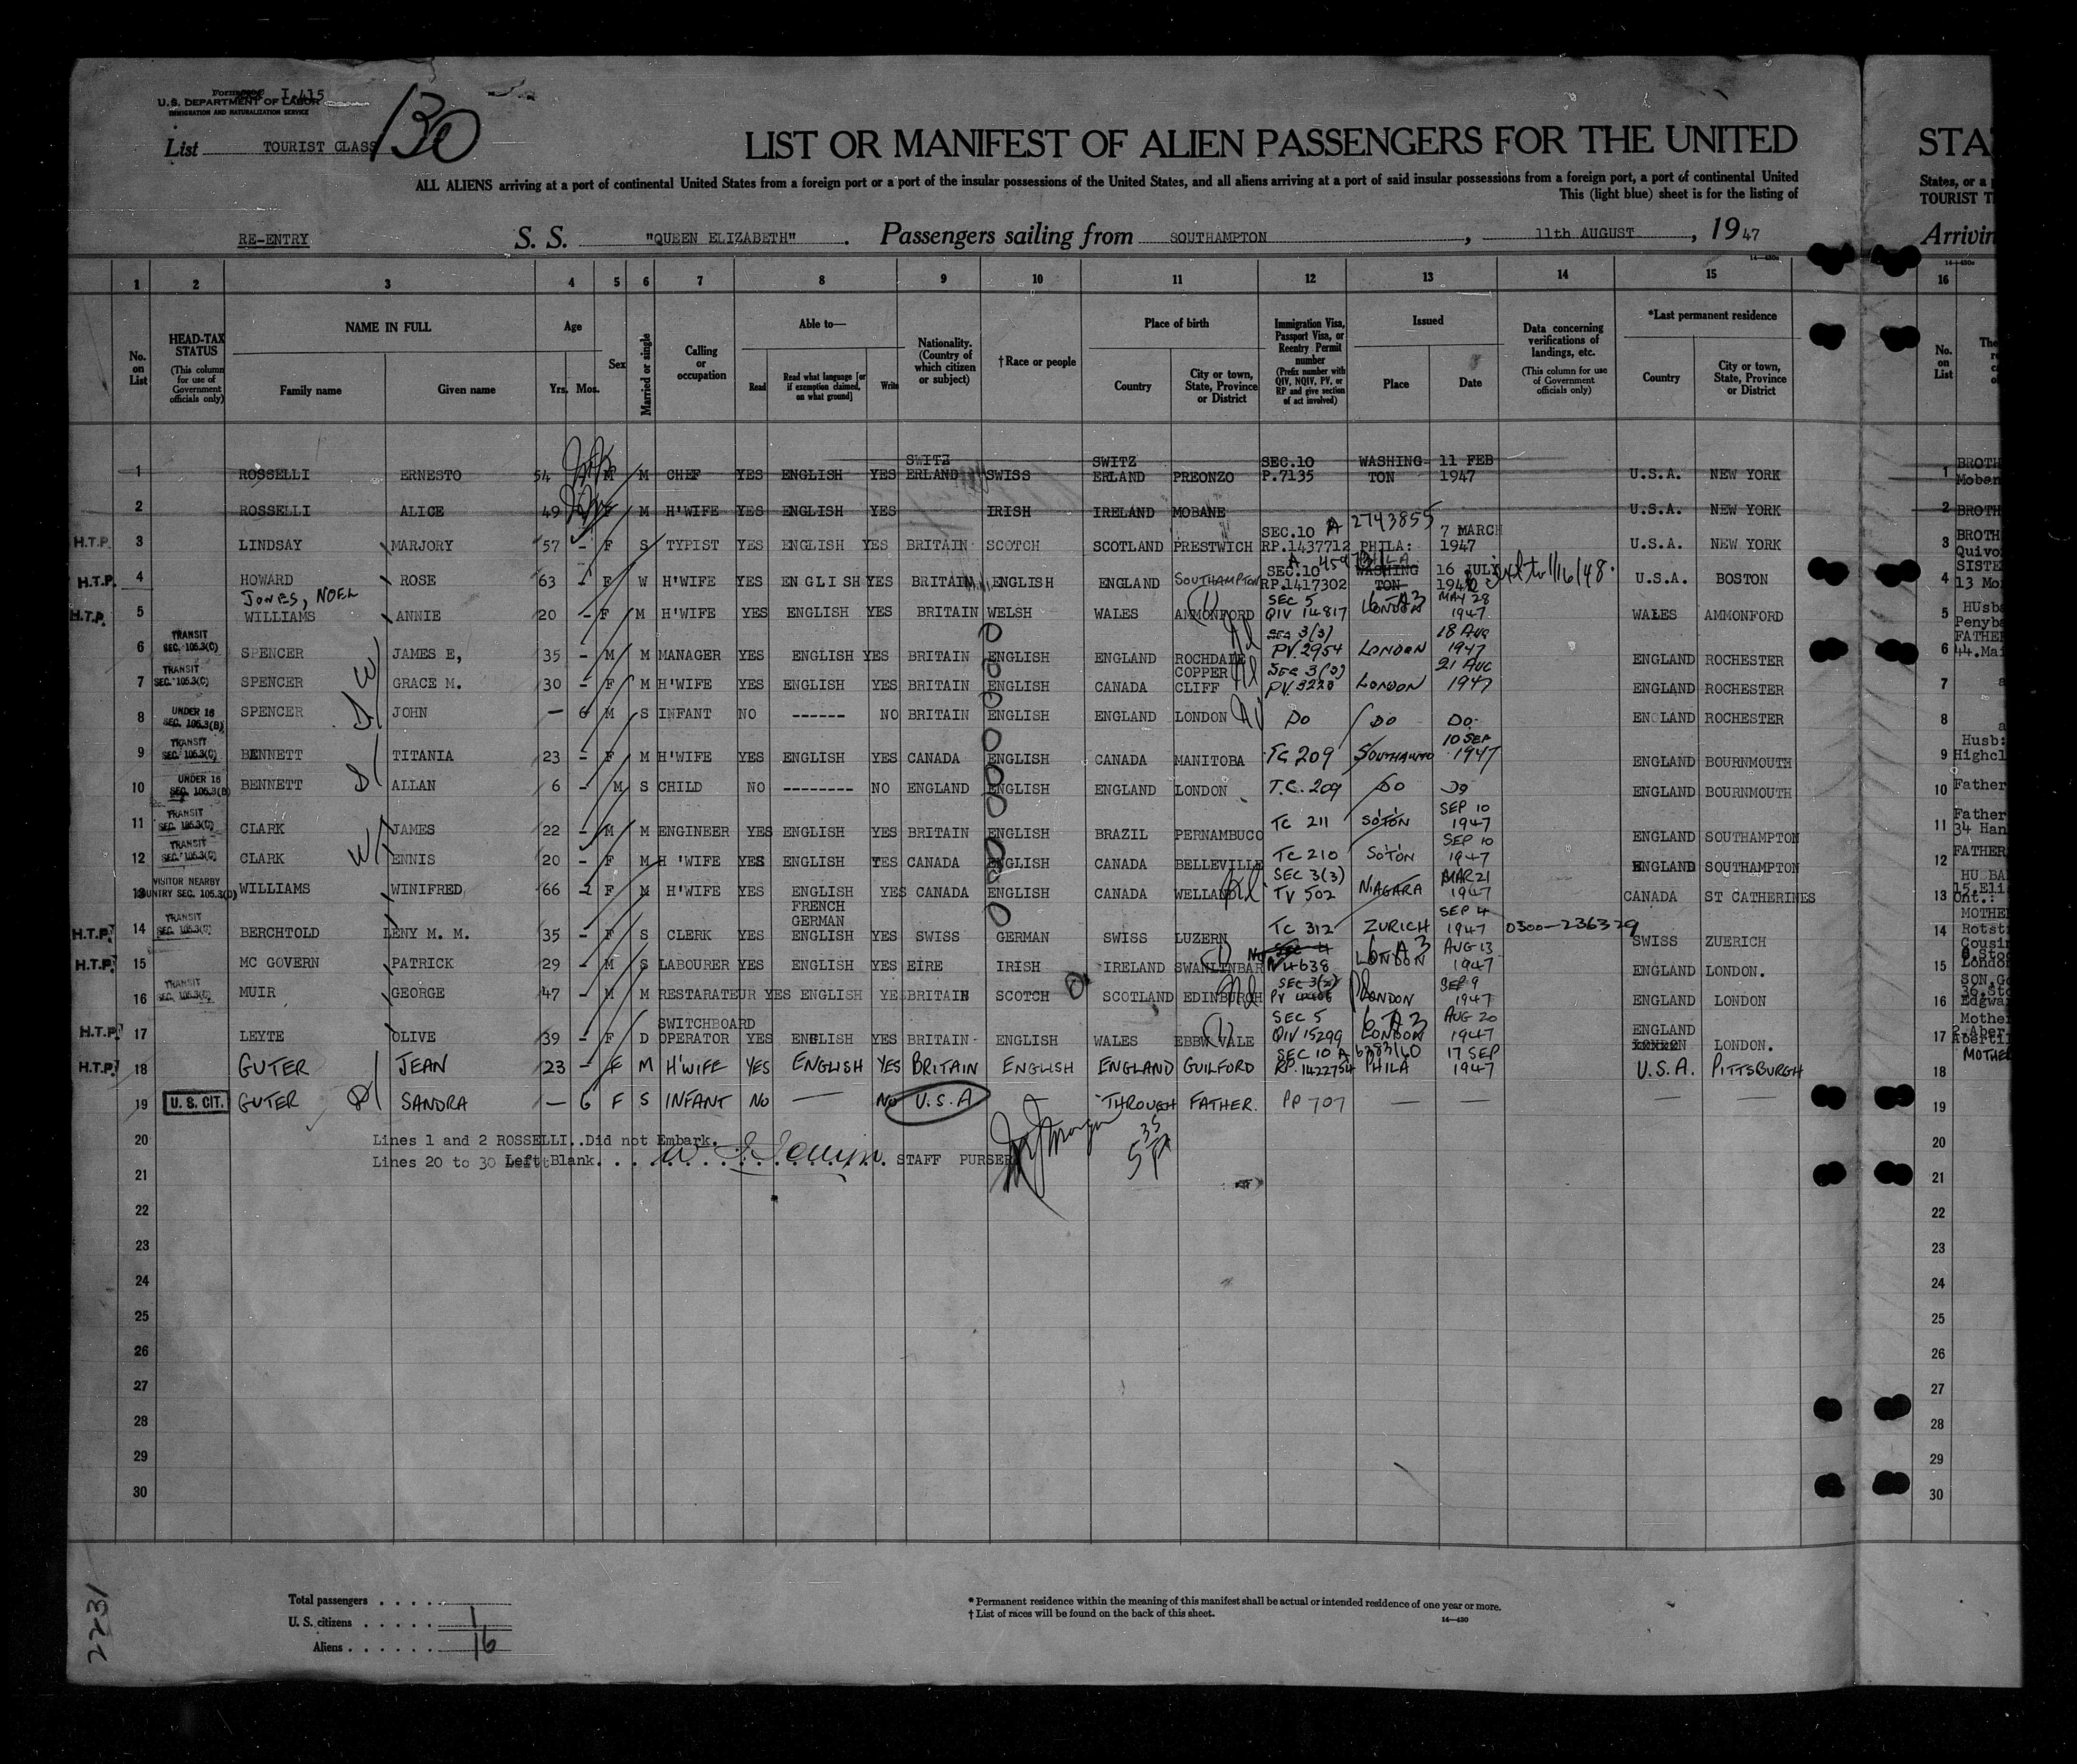 Form I-415
U.S. DEPARTMENT OF LABOR
IMMIGRATION AND NATURALIZATION SERVICE
List TOURIST CLASS 130
LIST OR MANIFEST OF ALIEN PASSENGERS FOR THE UNITED STA
ALL ALIENS arriving at a port of continental United States from a foreign port or a port of the insular possessions of the United States, and all aliens arriving at a port of said insular possessions from a foreign port, a port of continental United States, or a
This (light blue) sheet is for the listing of TOURIST
RE-ENTRY S. S. "QUEEN ELIZABETH". Passengers sailing from SOUTHAMPTON, 11th AUGUST, 1947 Arrivin
14-430c
1 2 3 4 5 6 7 8 9 10 11 12 13 14 15 16
No. on List
HEAD-TAX STATUS (This column for use of Government officials only)
NAME IN FULL Family name Given name
Age Yrs. Mos.
Sex
Married or single
Calling or occupation
Able to— Read Read what language [or if exemption claimed, on what ground] Write
Nationality. (Country of which citizen or subject)
†Race or people
Place of birth Country City or town, State, Province or District
Immigration Visa, Passport Visa, or Reentry Permit number (Prefix number with QIV, NQIV, PV, or RP and give section of act involved)
Issued Place Date
Data concerning verifications of landings, etc. (This column for use of Government officials only)
*Last permanent residence Country City or town, State, Province or District
No. on List The
1 ROSSELLI ERNESTO 54 M M CHEF YES ENGLISH YES SWITZ ERLAND SWISS SWITZ ERLAND PREONZO SEC.10 P.7135 WASHING TON 11 FEB 1947 U.S.A. NEW YORK 1 BROTH Moban
2 ROSSELLI ALICE 49 F M H'WIFE YES ENGLISH YES IRISH IRELAND MOBANE U.S.A. NEW YORK 2 BROTH
H.T.P. 3 LINDSAY MARJORY 57 - F S TYPIST YES ENGLISH YES BRITAIN SCOTCH SCOTLAND PRESTWICH SEC.10 A 2743855 RP.1437712 PHILA: 7 MARCH 1947 U.S.A. NEW YORK 3 BROTH Quivo
H.T.P. 4 HOWARD ROSE 63 - F W H'WIFE YES ENGLISH YES BRITAIN ENGLISH ENGLAND SOUTHAMPTON SEC.10 RP.1417302 WASHING TON 16 JULY U.S.A. BOSTON 4 SISTE 13 Mo
JONES, NOEL
H.T.P. 5 WILLIAMS ANNIE 20 - F M H'WIFE YES ENGLISH YES BRITAIN WELSH WALES AMMONFORD SEC 5 QIV 14817 LONDON MAY 28 1947 WALES AMMONFORD 5 HUsba Penyba
TRANSIT SEC. 105.3(C) 6 SPENCER JAMES E, 35 - M M MANAGER YES ENGLISH YES BRITAIN ENGLISH ENGLAND ROCHDALE SEC 3(3) PV 2954 LONDON 18 AUG 1947 ENGLAND ROCHESTER 6 FATHER 44.Mai
TRANSIT SEC. 105.3(C) 7 SPENCER GRACE M. 30 - F M H'WIFE YES ENGLISH YES BRITAIN ENGLISH CANADA COPPER CLIFF SEC 3(3) PV.3220 LONDON 21 AUG 1947 ENGLAND ROCHESTER 7 a
UNDER 16 SEC. 105.3(B) 8 SPENCER JOHN — 6 M S INFANT NO ------ NO BRITAIN ENGLISH ENGLAND LONDON DO DO DO ENGLAND ROCHESTER 8 a
TRANSIT SEC. 105.3(C) 9 BENNETT TITANIA 23 - F M H'WIFE YES ENGLISH YES CANADA ENGLISH CANADA MANITOBA TC 209 10 SEP 1947 ENGLAND BOURNMOUTH 9 Husb: Highcl
UNDER 16 SEC. 105.3(B) 10 BENNETT ALLAN 6 - M S CHILD NO -------- NO ENGLAND ENGLISH ENGLAND LONDON T.C. 209 DO DO ENGLAND BOURNMOUTH 10 Father
TRANSIT SEC. 105.3(C) 11 CLARK JAMES 22 - M M ENGINEER YES ENGLISH YES BRITAIN ENGLISH BRAZIL PERNAMBUCO TC 211 SOTON SEP 10 1947 ENGLAND SOUTHAMPTON 11 Father 34 Han
TRANSIT SEC. 105.3(C) 12 CLARK ENNIS 20 - F M H'WIFE YES ENGLISH YES CANADA ENGLISH CANADA BELLEVILLE TC 210 SOTON SEP 10 1947 ENGLAND SOUTHAMPTON 12 FATHER
VISITOR NEARBY COUNTRY SEC. 105.3(D) 13 WILLIAMS WINIFRED 66 - F M H'WIFE YES ENGLISH YES CANADA ENGLISH CANADA WELLAND SEC 3(3) TV 502 NIAGARA MAR 21 1947 CANADA ST CATHERINES 13 HUSBA 15.Eli Ont.:
TRANSIT SEC. 105.3(C) H.T.P. 14 BERCHTOLD LENY M. M. 35 - F S CLERK YES FRENCH GERMAN ENGLISH YES SWISS GERMAN SWISS LUZERN TC 312 ZURICH SEP 4 1947 0300-236329 SWISS ZUERICH 14 MOTHE Rotst Cousin
H.T.P. 15 MC GOVERN PATRICK 29 - M S LABOURER YES ENGLISH YES EIRE IRISH IRELAND SWANLINBAR 4638 LONDON AUG 13 1947 ENGLAND LONDON. 15 London
TRANSIT SEC. 105.3(C) 16 MUIR GEORGE 47 - M M RESTARATEUR YES ENGLISH YES BRITAIN SCOTCH SCOTLAND EDINBURGH SEC 3(3) PV LONDON SEP 9 1947 ENGLAND LONDON 16 SON,Ge 36.Sto Edgwa
H.T.P. 17 LEYTE OLIVE 39 - F D SWITCHBOARD OPERATOR YES ENGLISH YES BRITAIN ENGLISH WALES EBBW VALE SEC 5 QIV 15299 LONDON AUG 20 1947 ENGLAND LONDON. 17 Mothe 2.Aber Abertil
H.T.P. 18 GUTER JEAN 23 - F M H'WIFE YES ENGLISH YES BRITAIN ENGLISH ENGLAND GUILFORD SEC 10 A 6383160 RP. 1422754 PHILA 17 SEP 1947 U.S.A. PITTSBURGH 18 MOTHE
U. S. CIT. 19 GUTER SANDRA — 6 F S INFANT NO — NO U.S.A THROUGH FATHER. PP 707 — — — — 19
20 Lines 1 and 2 ROSSELLI..Did not Embark. 20
Lines 20 to 30 Left Blank. STAFF PURSER
35
SP
21 21
22 22
23 23
24 24
25 25
26 26
27 27
28 28
29 29
30 30
2231
Total passengers
U. S. citizens 1
Aliens 16
* Permanent residence within the meaning of this manifest shall be actual or intended residence of one year or more.
† List of races will be found on the back of this sheet.
14-430